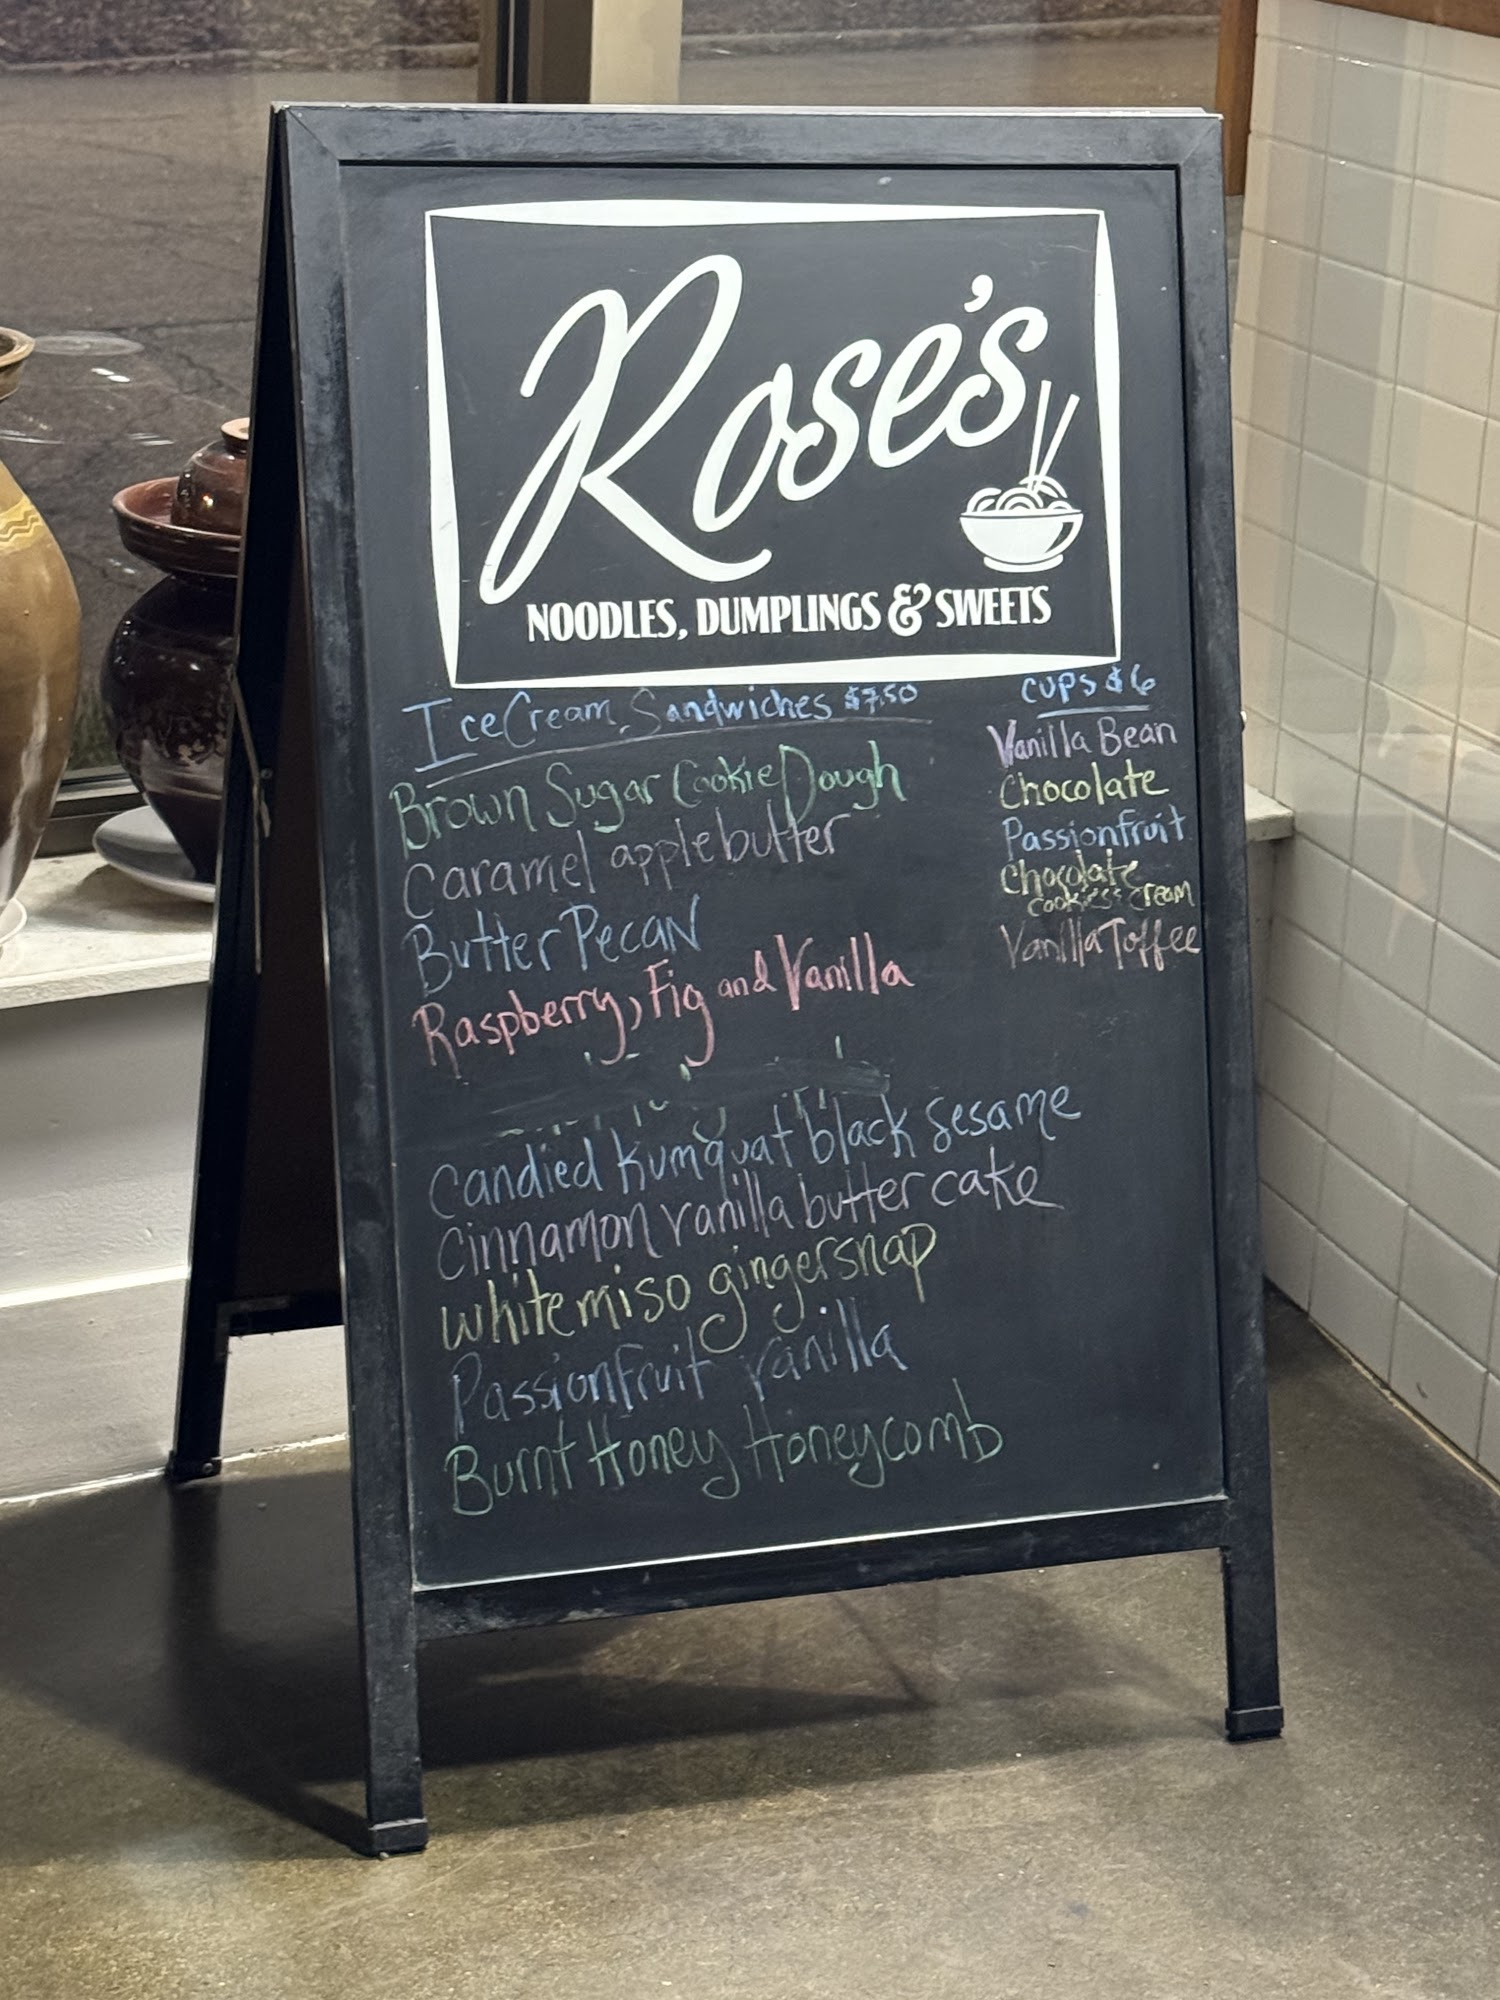 Rose's
NOODLES, DUMPLINGS & SWEETS
Ice Cream Sandwiches $7.50
Brown Sugar Cookie Dough
Caramel apple butter
Butter Pecan
Raspberry, Fig and Vanilla
Candied Kumquat black sesame
Cinnamon vanilla butter cake
white miso gingersnap
Passionfruit vanilla
Burnt Honey Honeycomb
CUPS $6
Vanilla Bean
Chocolate
Passionfruit
Chocolate
cookies & cream
Vanilla Toffee